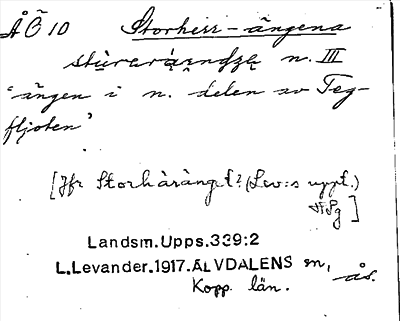 ÅÖ 10 Storherr-ängena
n. III
'ängen i n. delen av Teg-
fljoten'
[Jfr Storhäränget? (Lev:s uppt.)
]
Landsm.Upps.339:2
L.Levander.1917.ÄLVDALENS sn, ås.
Kopp. län.